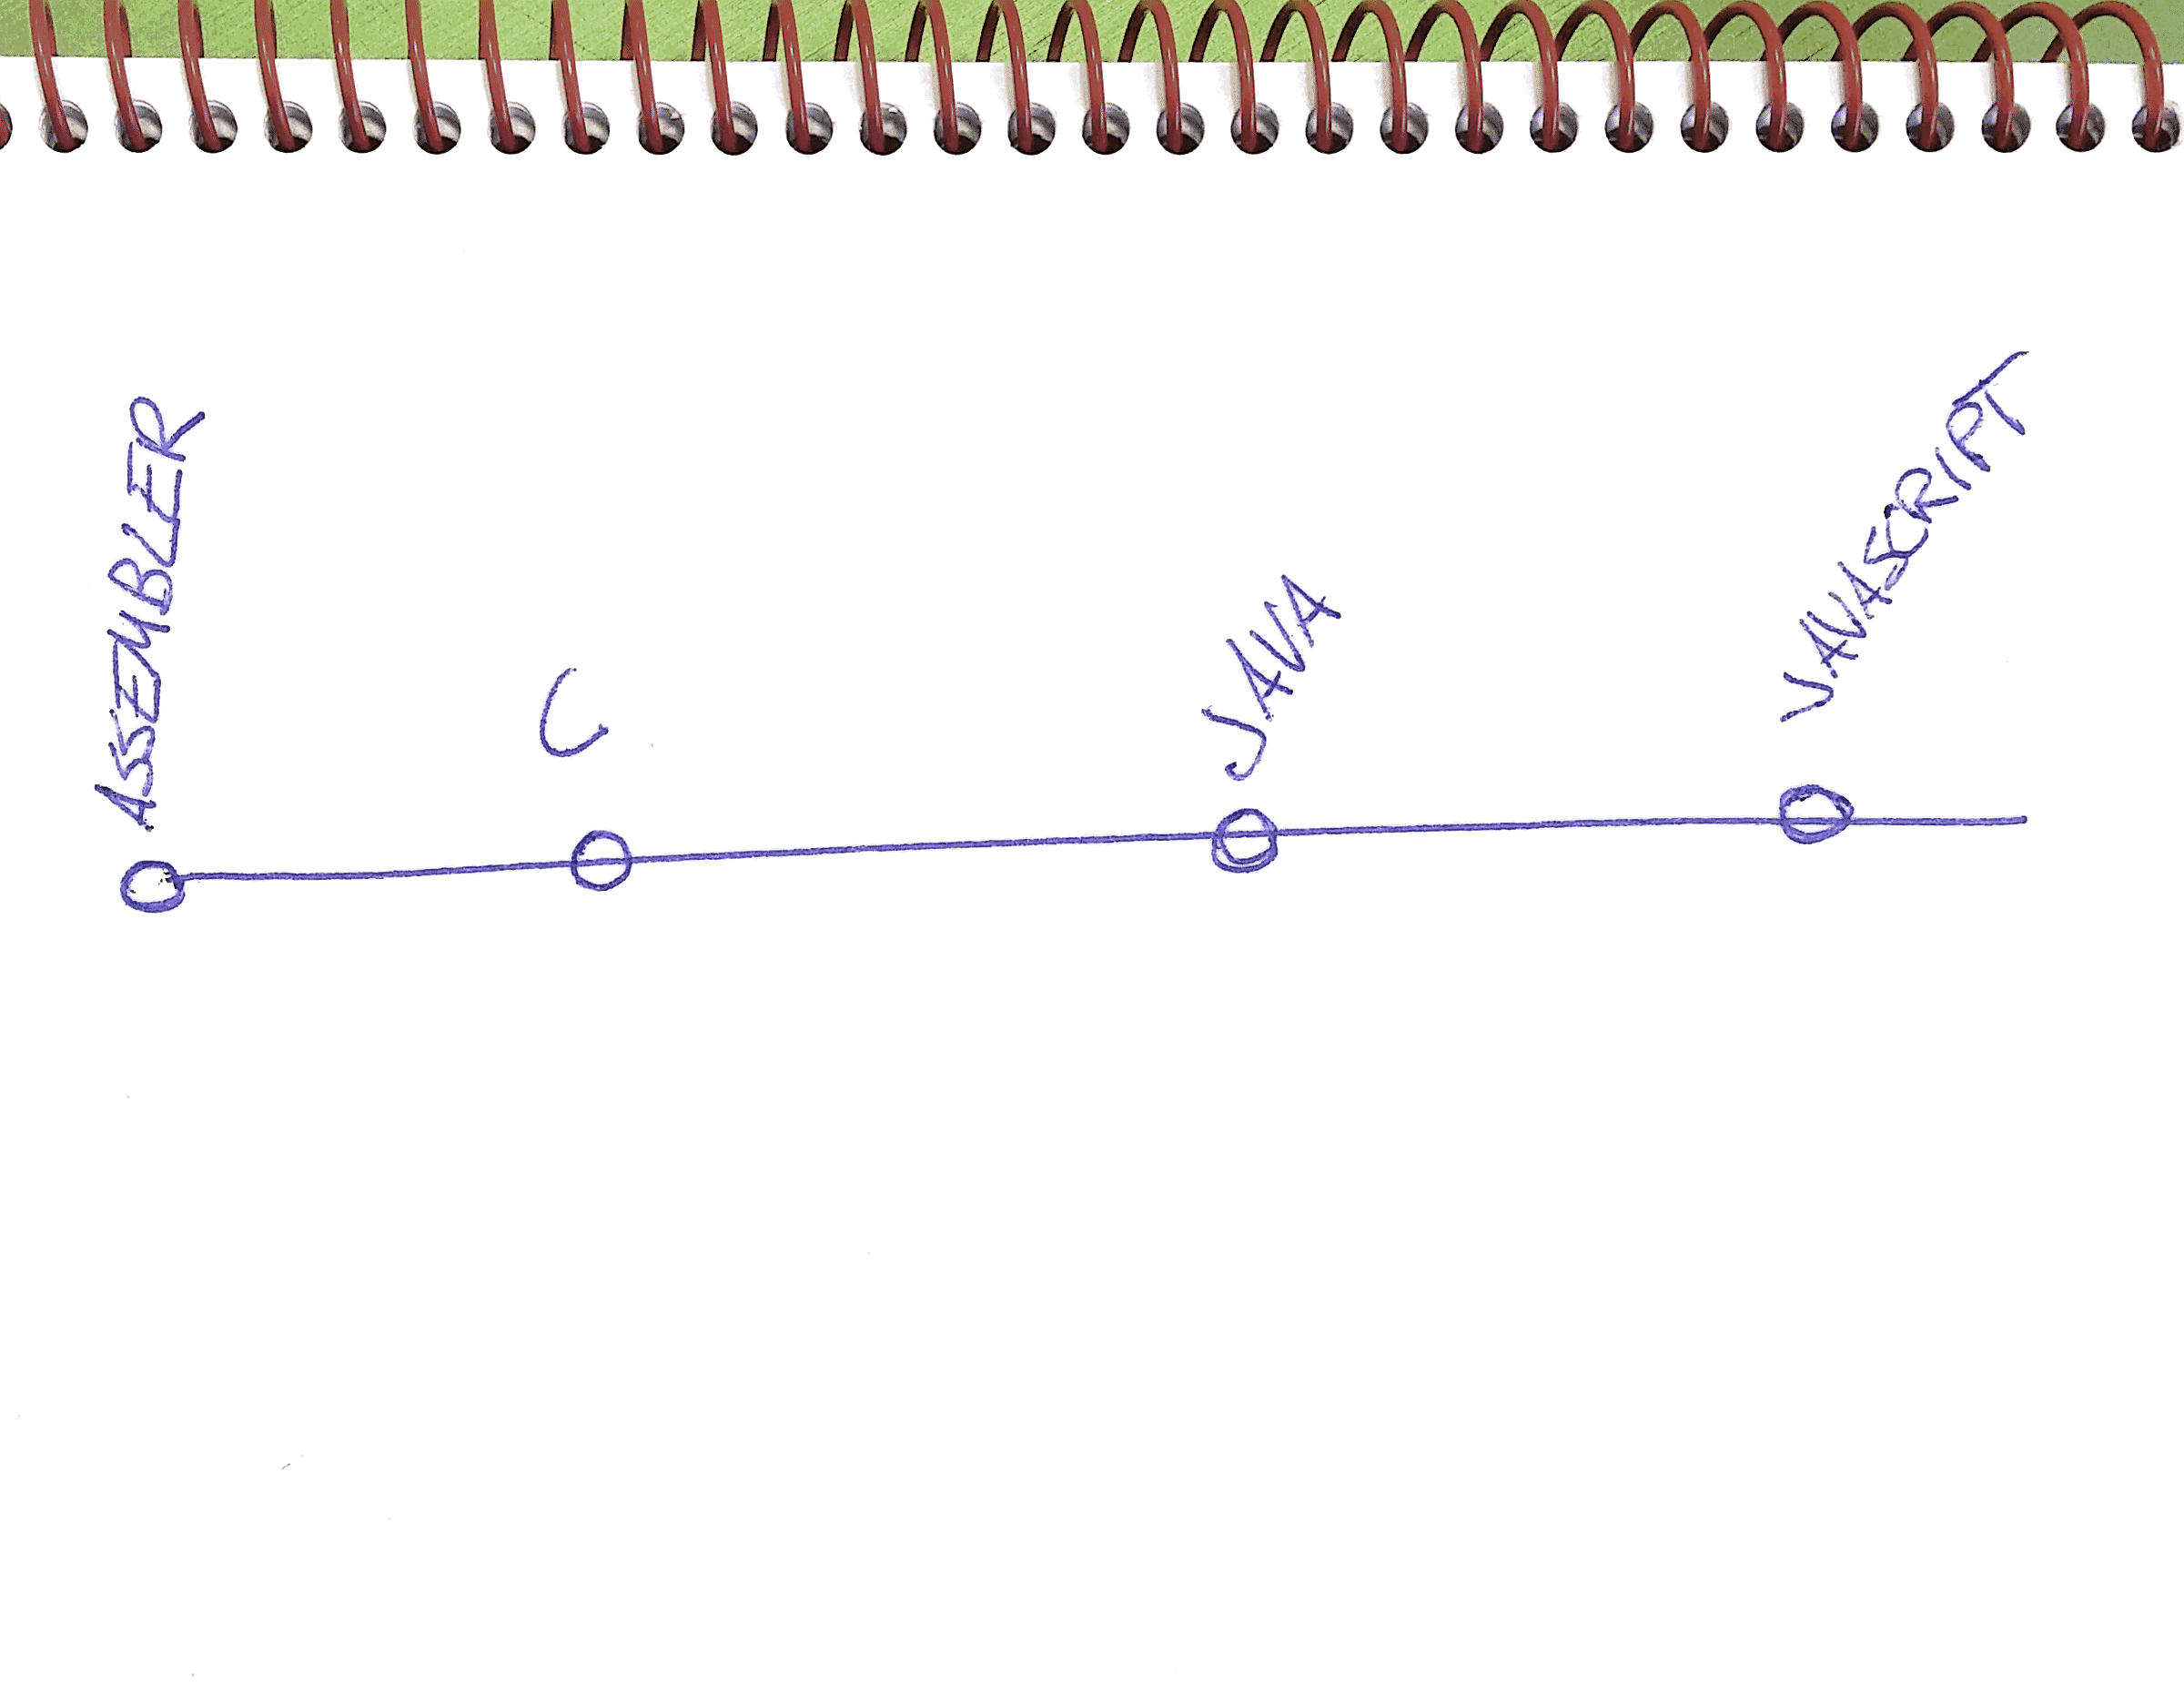 ASSEMBLER
C
JAVA
JAVASCRIPT